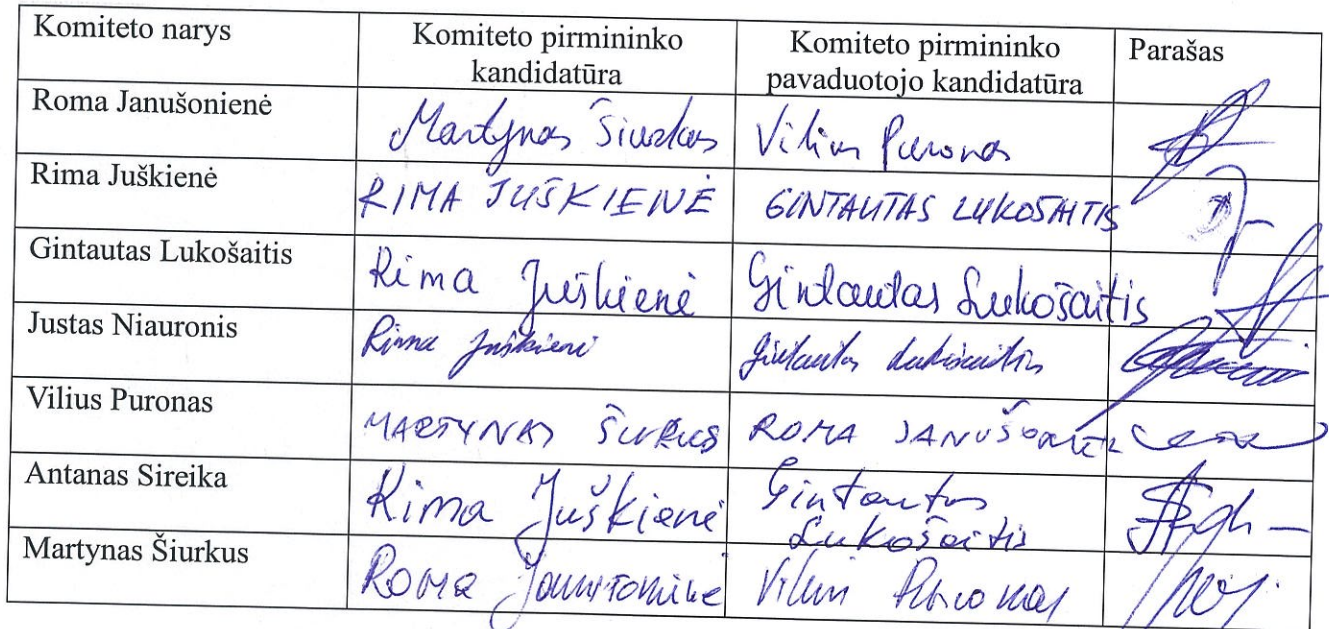 Komiteto narys
Komiteto pirmininko
kandidatūra
Komiteto pirmininko
pavaduotojo kandidatūra
Parašas
Roma Janušonienė
Martynas Šiurkus
Vilius Puronas
Rima Juškienė
RIMA JUŠKIENĖ
GINTAUTAS LUKOŠAITIS
Gintautas Lukošaitis
Rima Juškienė
Gintautas Lukošaitis
Justas Niauronis
Rima Juškienė
Gintautas Lukošaitis
Vilius Puronas
MARTYNAS ŠIURKUS
ROMA JANUŠONIENĖ
Antanas Sireika
Rima Juškienė
Gintautas
Lukošaitis
Martynas Šiurkus
Roma
Vilius Puronas